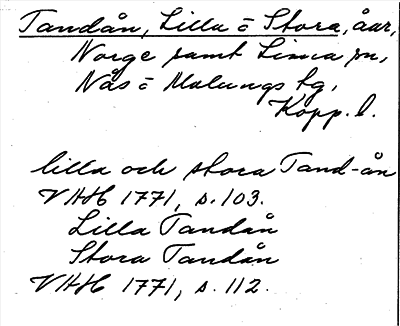 Tandån, Lilla o Stora, åar,
Norge samt Lima sn,
Nås o Malungs tg,
Kopp. l.
lilla och stora Tand-ån
VHH 1771, s. 103.
Lilla Tandån
Stora Tandån
VHH 1771, s. 112.